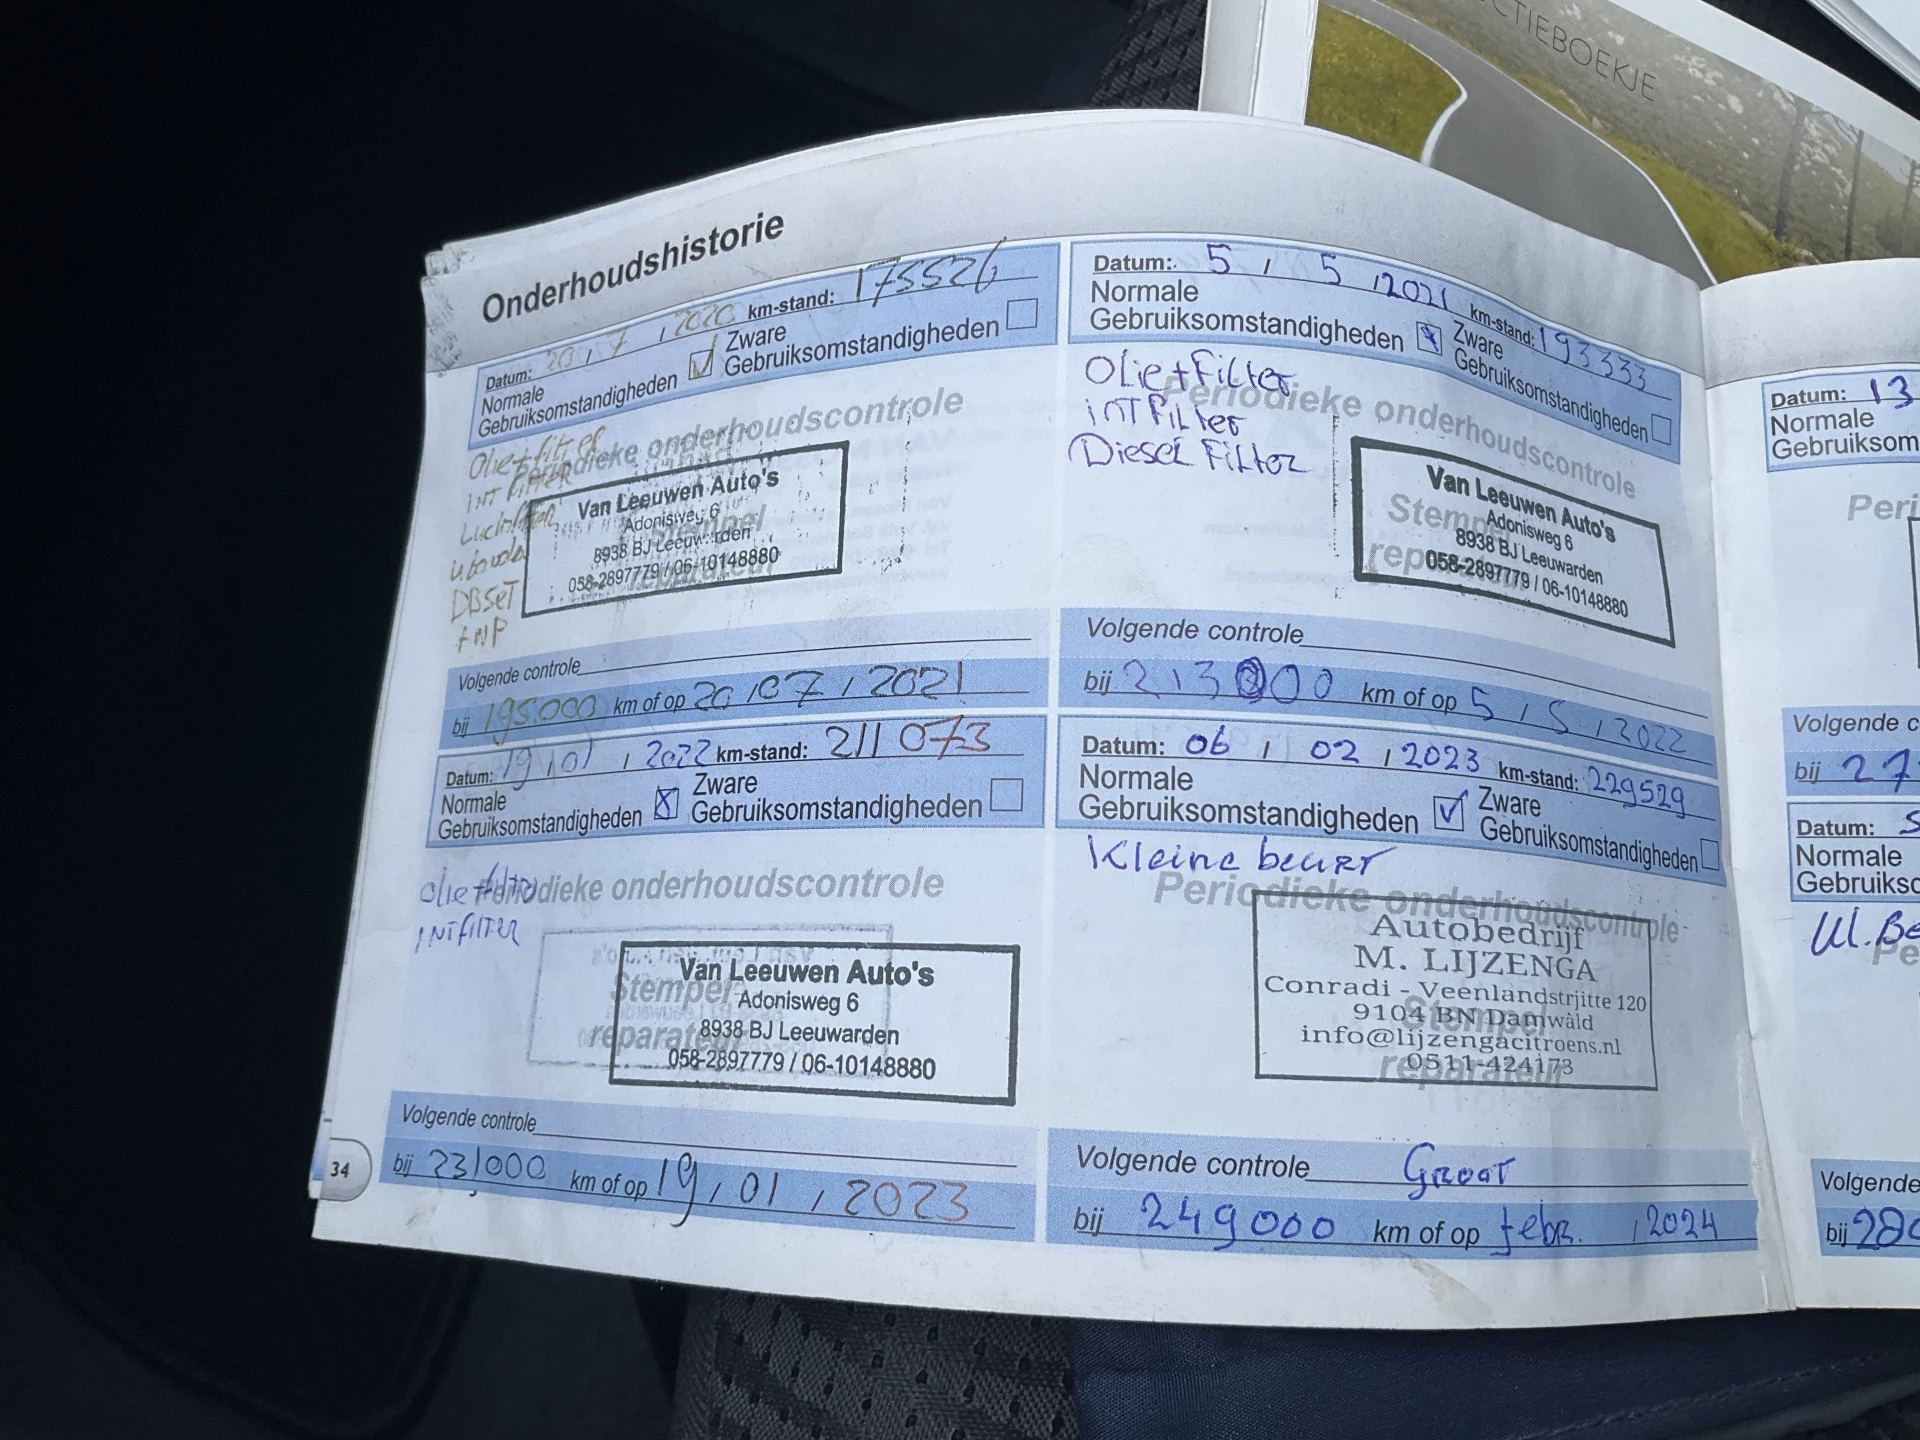 CTIEBOEKJE
Onderhoudshistorie
Datum: 20 / 7 / 2020 km-stand: 175526
Normale Gebruiksomstandigheden
Zware Gebruiksomstandigheden
Olie+filter
Periodieke onderhoudscontrole
INT FILTER
Luchtfilter
DBSET
Stempel reparateur
Van Leeuwen Auto's
Adonisweg 6
8938 BJ Leeuwarden
058-2897779 / 06-10148880
Volgende controle
bij 195.000 km of op 20 / 07 / 2021
Datum: 5 / 5 / 2021 km-stand: 193333
Normale Gebruiksomstandigheden
Zware Gebruiksomstandigheden
Olie+Filter
Periodieke onderhoudscontrole
INT Filter
Diesel Filter
Stempel reparateur
Van Leeuwen Auto's
Adonisweg 6
8938 BJ Leeuwarden
058-2897779 / 06-10148880
Volgende controle
bij 213000 km of op 5 / 5 / 2022
Datum: 19 / 01 / 2022 km-stand: 211073
Normale Gebruiksomstandigheden
Zware Gebruiksomstandigheden
olie+filter
Periodieke onderhoudscontrole
INTFILTER
Stempel reparateur
Van Leeuwen Auto's
Adonisweg 6
8938 BJ Leeuwarden
058-2897779 / 06-10148880
Volgende controle
bij 231000 km of op 19 / 01 / 2023
34
Datum: 06 / 02 / 2023 km-stand: 229529
Normale Gebruiksomstandigheden
Zware Gebruiksomstandigheden
Kleine beurt
Periodieke onderhoudscontrole
Stempel reparateur
Autobedrijf
M. LIJZENGA
Conradi - Veenlandstrjitte 120
9104 BN Damwâld
info@lijzengacitroens.nl
0511-424173
Volgende controle Groot
bij 249000 km of op febr. / 2024
Datum: 13
Normale
Gebruiksom
Peri
Volgende c
bij 27
Datum:
Normale
Gebruiksc
Pe
Volgende
bij 28